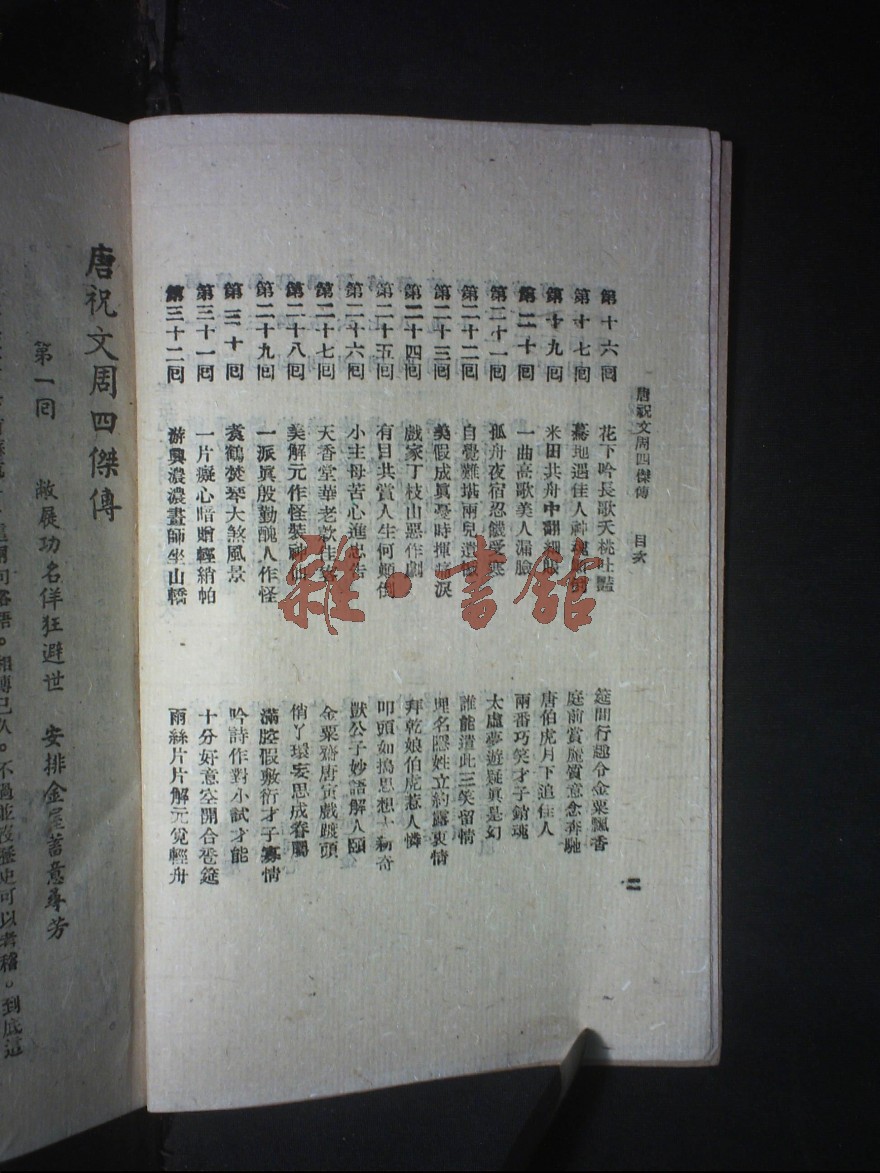 唐祝文周四傑傳 目次 二
第十六回 花下吟長歌夭桃吐豔 筵間行趣令金粟飄香
第十七回 驀地遇佳人神魂 庭前賞麗質意念奔馳
第十九回 米田共舟中翻 唐伯虎月下追佳人
第二十回 一曲高歌美人漏臉 兩番巧笑才子銷魂
第二十一回 孤舟夜宿忍饑受寒 太虛夢遊疑眞是幻
第二十二回 自覺難堪兩兒遺 誰能遣此三笑留情
第二十三回 美假成眞憂時揮 埋名隱姓立約露衷情
第二十四回 戲家丁枝山惡作劇 拜乾娘伯虎惹人憐
第二十五回 有目共賞人生何顛倒 叩頭如搗思想十新奇
第二十六回 小主母苦心進忠告 獃公子妙語解人頤
第二十七回 天香堂華老款佳客 金粟齋唐寅戲踱頭
第二十八回 美解元作怪裝神 俏丫環妄思成眷屬
第二十九回 一派眞殷勤醜人作怪 滿腔假敷衍才子寡情
第三十回 煑鶴焚琴大煞風景 吟詩作對小試才能
第三十一回 一片癡心暗贈輕綃帕 十分好意空開合巹筵
第三十二回 游興濃濃畫師坐山轎 雨絲片片解元覓輕舟
雜·書館
唐祝文周四傑傳
第一回 敝屣功名佯狂避世 安排金屋蓄意尋芳
相傳已久。不過並沒歷史可以考稽。到底這